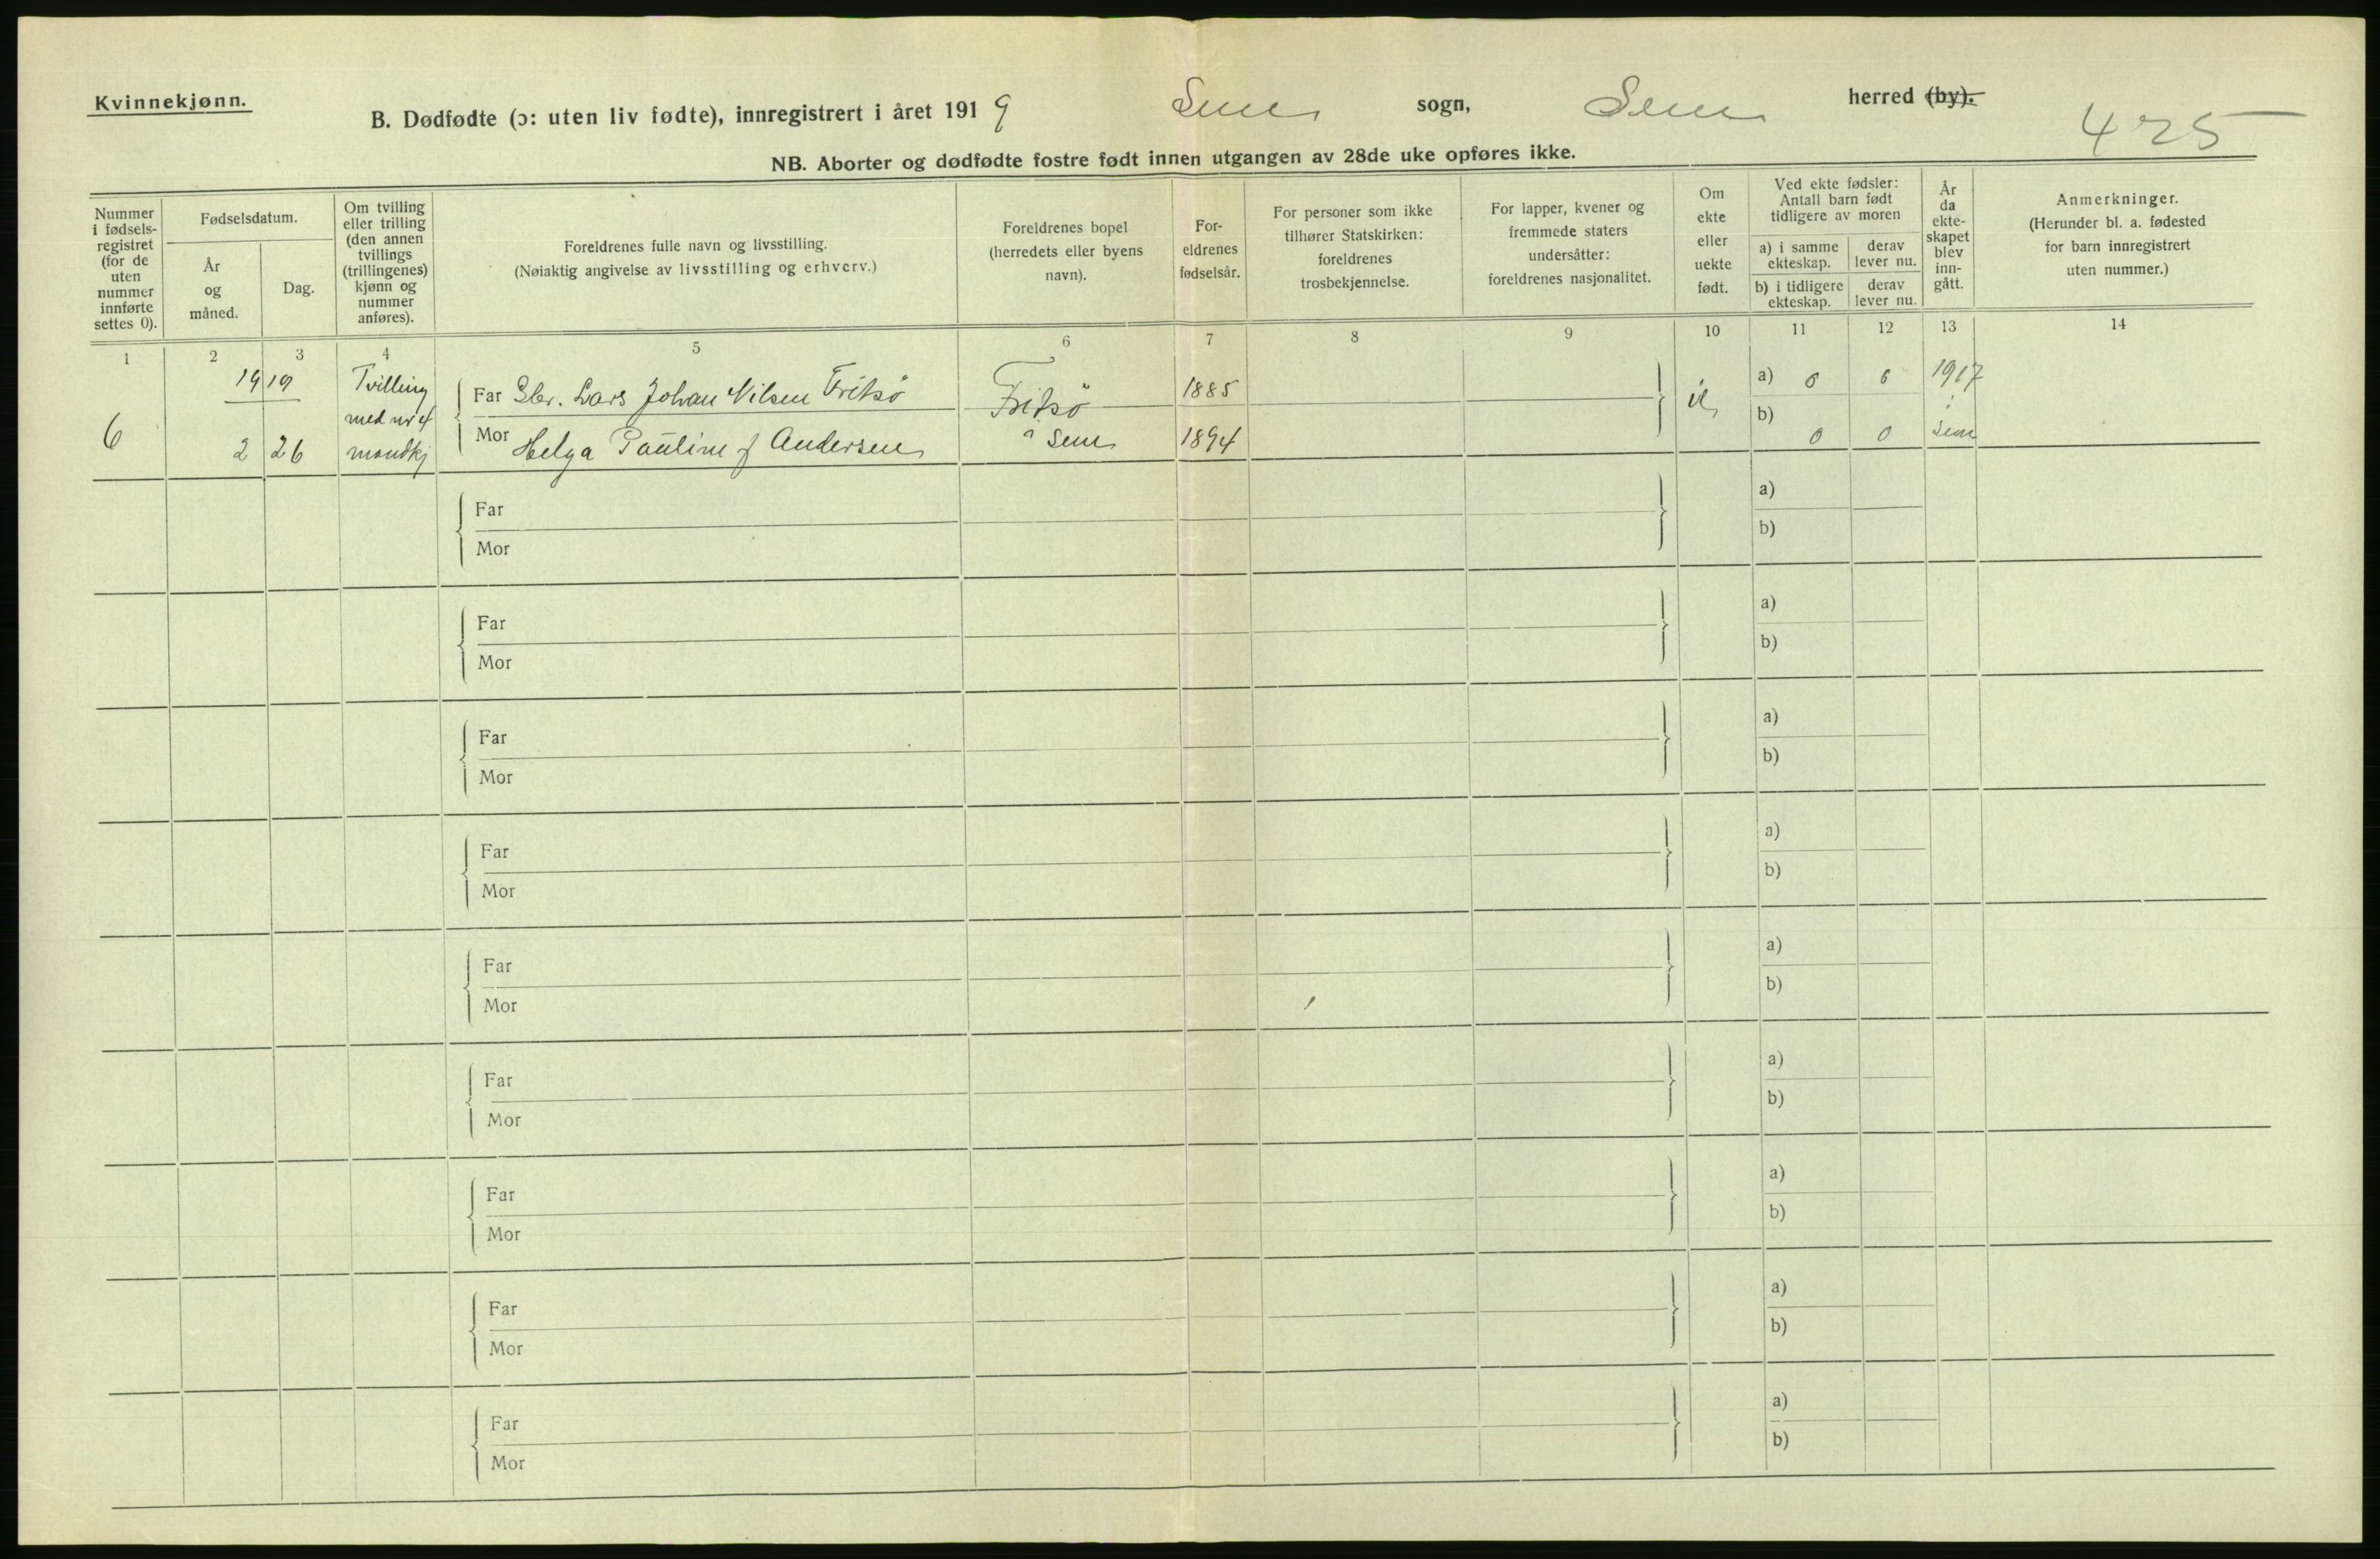 Kvinnekjønn.
B. Dødfødte (ɔ: uten liv fødte), innregistrert i året 1919 Sem sogn, Sem herred (by).
425
NB. Aborter og dødfødte fostre født innen utgangen av 28de uke opføres ikke.
Nummer
i fødsels-
registret
(for de
uten
nummer
innførte
settes 0).
Fødselsdatum.
År
og
måned.
Dag.
Om tvilling
eller trilling
(den annen
tvillings
(trillingenes)
kjønn og
nummer
anføres).
Foreldrenes fulle navn og livsstilling.
(Nøiaktig angivelse av livsstilling og erhverv.)
Foreldrenes bopel
(herredets eller byens
navn).
For-
eldrenes
fødselsår.
For personer som ikke
tilhører Statskirken:
foreldrenes
trosbekjennelse.
For lapper, kvener og
fremmede staters
undersåtter:
foreldrenes nasjonalitet.
Om
ekte
eller
uekte
født.
Ved ekte fødsler:
Antall barn født
tidligere av moren
a) i samme
ekteskap.
derav
lever nu.
b) i tidligere
ekteskap.
derav
lever nu.
År
da
ekte-
skapet
blev
inn-
gått.
Anmerkninger.
(Herunder bl. a. fødested
for barn innregistrert
uten nummer.)
1 2 3 4 5 6 7 8 9 10 11 12 13 14
6
1919
2 26
Tvilling
med nr 4
mandkj
Far Gbr. Lars Johan Nilsen Fritsö
Mor Helga Pauline f Andersen
Fritsö
i Sem
1885
1894
a) 0 0
b)
0 0
1917
i
Sem
Far
Mor
a)
b)
Far
Mor
a)
b)
Far
Mor
a)
b)
Far
Mor
a)
b)
Far
Mor
a)
b)
Far
Mor
a)
b)
Far
Mor
a)
b)
Far
Mor
a)
b)
Far
Mor
a)
b)